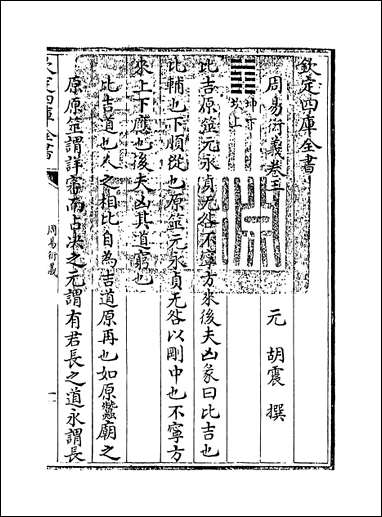 欽定四庫全書
周易衍義卷三
元 胡震 撰
坤下
坎上
比吉原筮元永貞无咎不寧方來後夫凶彖曰比吉也
比輔也下順從也原筮元永貞无咎以剛中也不寧方
來上下應也後夫凶其道窮也
比吉道也人之相比自為吉道原再也如原蠶原廟之
原原筮謂詳審而占決之元謂有君長之道永謂長
欽定四庫全書
周易衍義
一